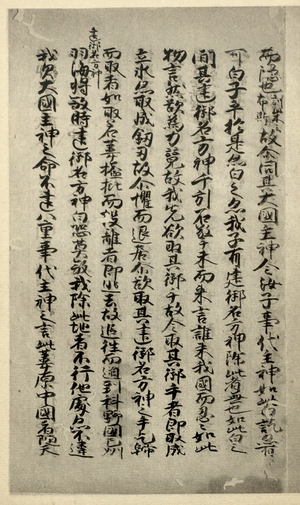 而隱也訓柴云布斯故尒問其大國主神今汝子事代主神如此白訖亦有
可白子乎於是亦白之亦我子有建御名方神除此者無也如此白之
間其建御名方神千引石擎手末而来言誰来我國而忍〻如此
物言然欲為力競故我先欲取其御手故令取其御手者即取成
立氷亦取成釼刃故尒懼而退居尒欲取其建御名方神之手乞歸
而取者如取若葦搤批而投離者即逃去故追往而迫到科野國之州
建御名方神
羽海將殺時建御名方神白恐莫殺我除此地者不行他處亦不違
我父大國主神之命不違八重事代主神之言此葦原中國者隨天